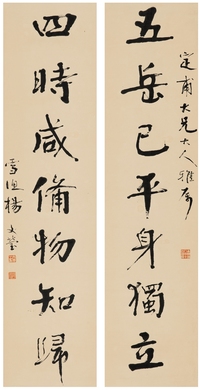 定甫大兄大人雅属
五岳已平身獨立
四時咸備物知歸
雪漁楊文瑩